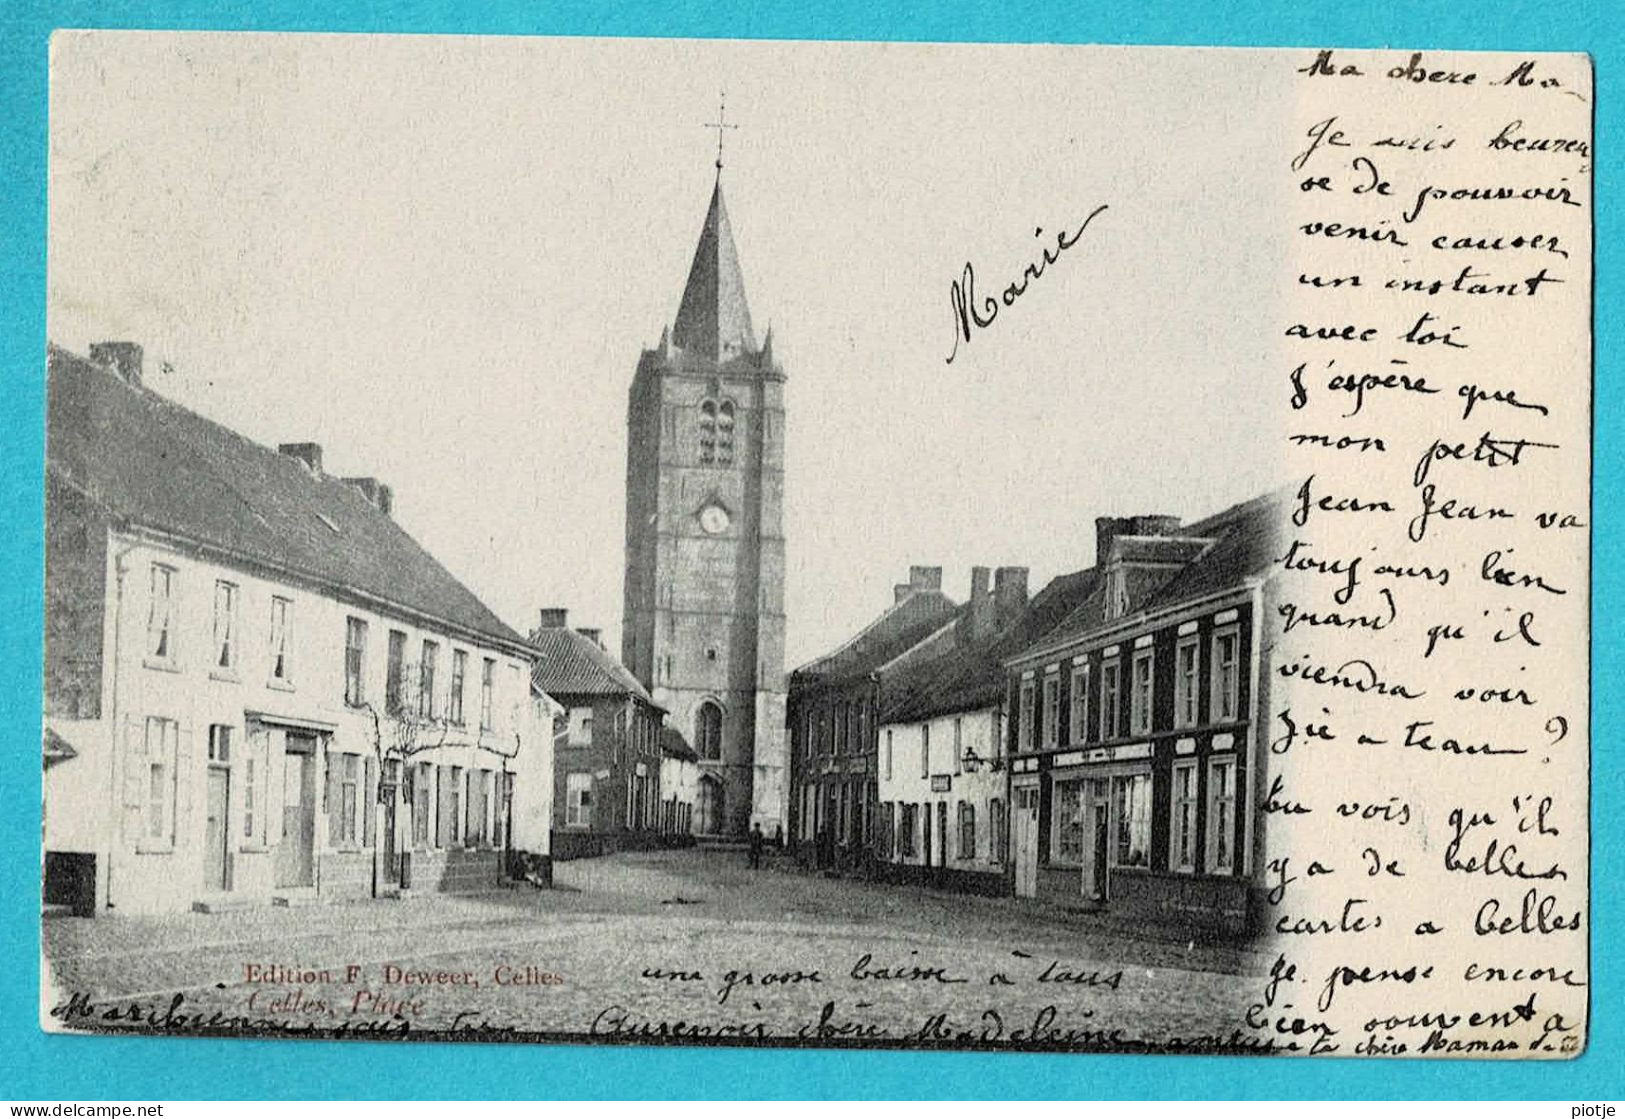 Ma chère Ma-
Je suis heureu
se de pouvoir
venir causer
un instant
avec toi
J'espère que
mon petit
Jean Jean va
toujours bien
quand qu'il
viendra voir
a teau ?
tu vois qu'il
y a de belles
cartes a Celles
Je pense encore
bien souvent a
ta chère Maman
Marie
une grosse baisse à tous
Edition F. Deweer, Celles
Celles, Place
Aurevoir chère Madeleine
www.delcampe.net
piotje